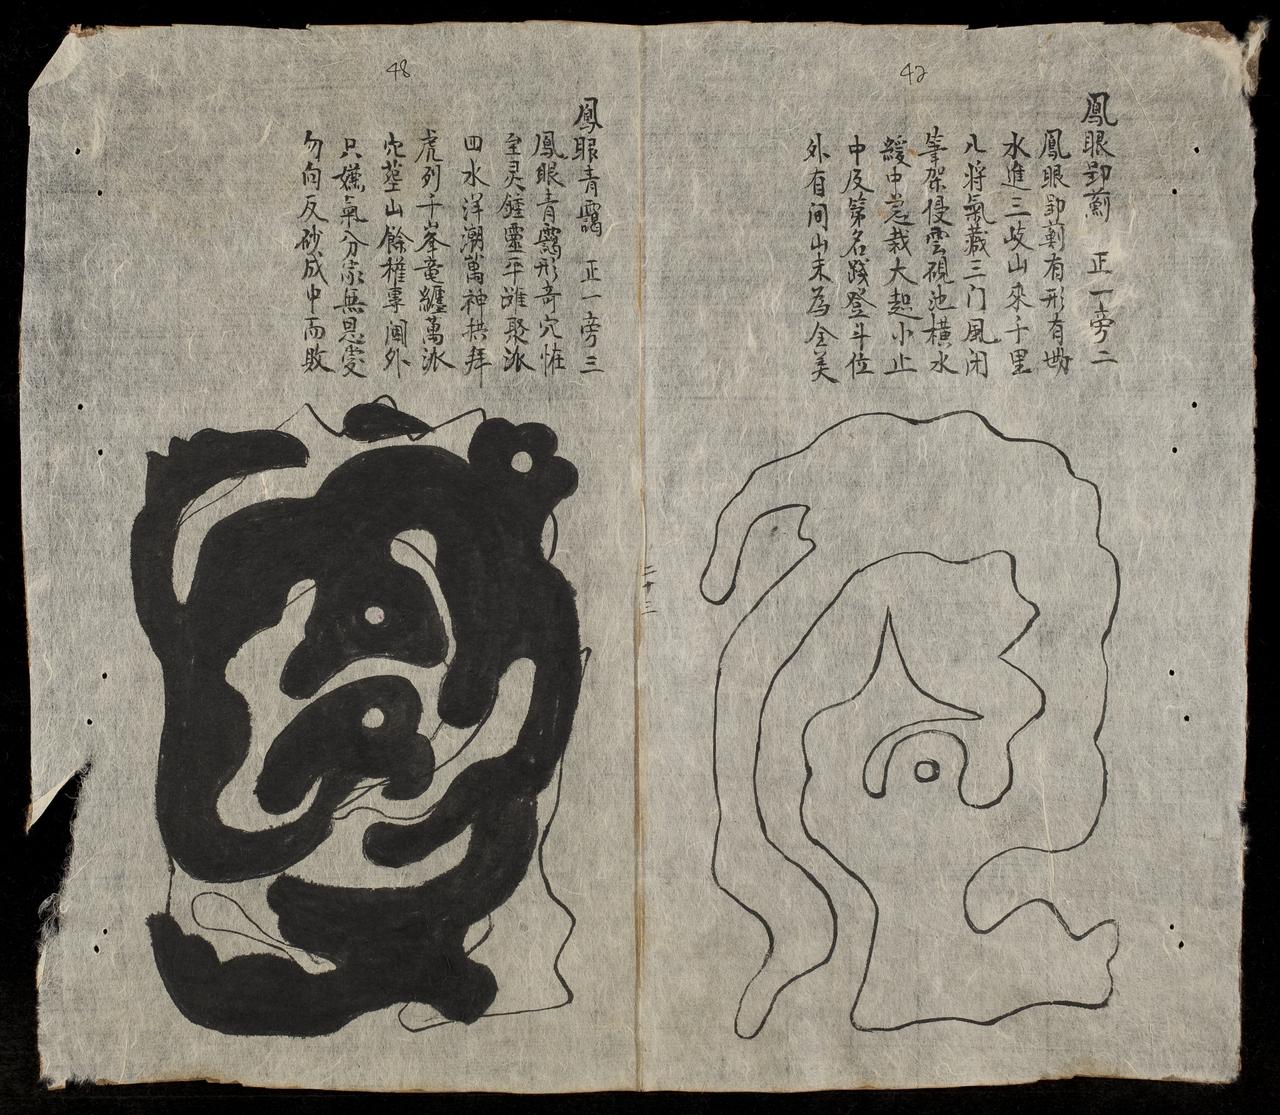 42
鳳眼 正一旁二
鳳眼 有形有
水進三歧山來千里
八將氣藏三门風闭
筆架侵雲硯池橫水
緩中急裁大起小止
中及第名践登斗位
外有间山未為全美
二十三
48
鳳眼青靄 正一旁三
鳳眼青靄形奇穴恠
至灵鍾靈平 聚派
四水洋潮萬神拱拜
虎列千峯竜纏萬派
穴塟山餘權專阃外
只嫌氣分家無恩愛
勿向反砂成中而敗